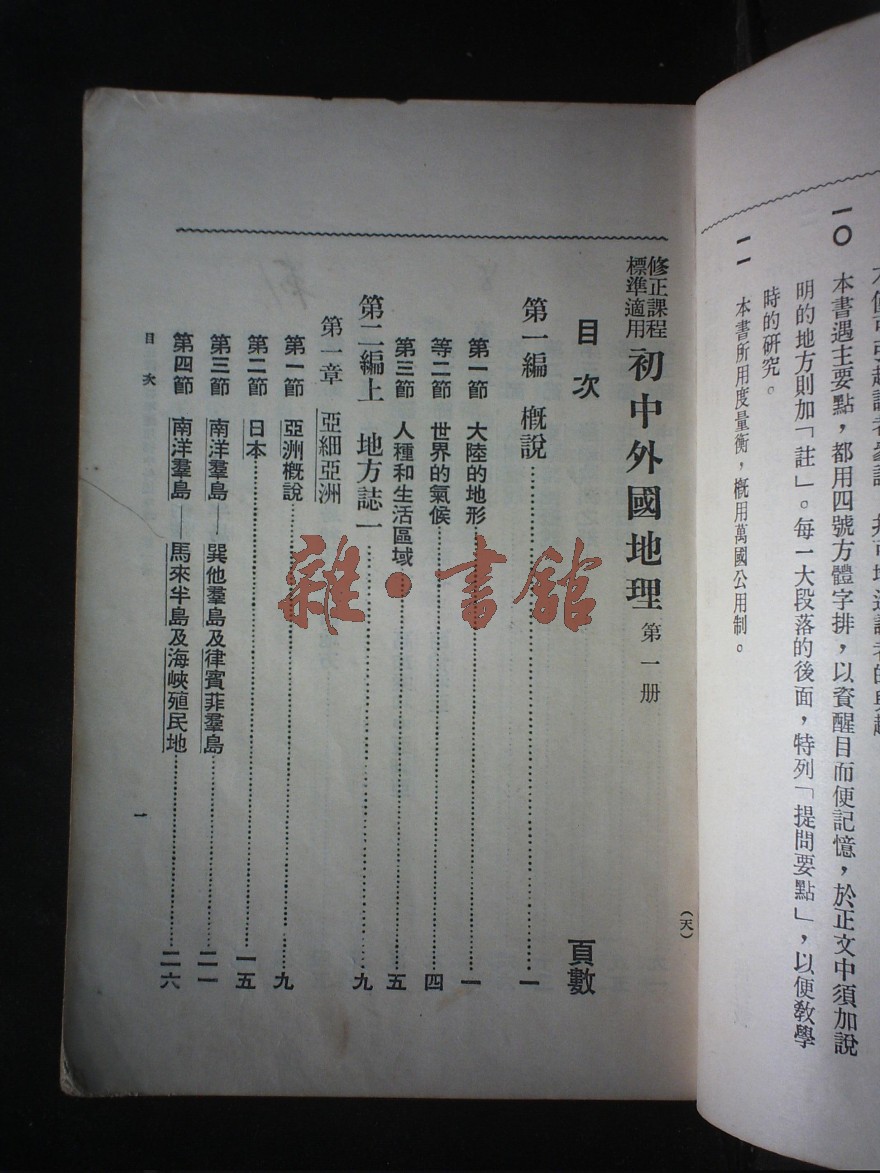 一〇　本書遇主要點，都用四號方體字排，以資醒目而便記憶，於正文中須加說
明的地方則加「註」。每一大段落的後面，特列「提問要點」，以便教學
時的研究。
一一　本書所用度量衡，概用萬國公用制。
(天)
修正課程
標準適用
初中外國地理　第一册
目次　頁數
第一編　概說……一
第一節　大陸的地形……一
等二節　世界的氣候……四
第三節　人種和生活區域……五
第二編上　地方誌一……九
第一章　亞細亞洲
第一節　亞洲概說……九
第二節　日本……一五
第三節　南洋羣島——巽他羣島及律賓菲羣島……二一
第四節　南洋羣島——馬來半島及海峽殖民地……二六
目次
一
雜·書館